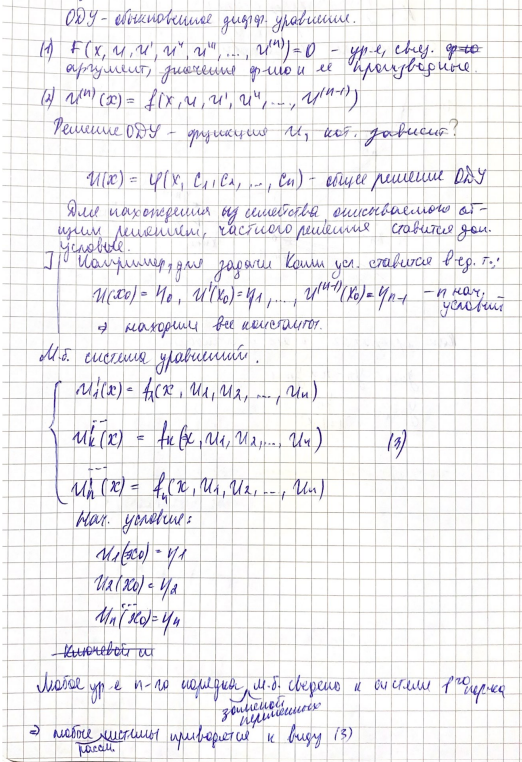 ОДУ - обыкновенное дифф. уравнение.
(1) F(x, u, u', u'', u''', ..., u⁽ⁿ⁾) = 0 - ур-е, связ.
аргумент, значение ф-ию и ее производные.
(2) u⁽ⁿ⁾(x) = f(x, u, u', u'', ..., u⁽ⁿ⁻¹⁾)
Решение ОДУ - функция u, кот. зависит?
u(x) = φ(x, c₁, c₂, ..., cₙ) - общее решение ОДУ
Для нахождения из семейства, описываемого об-
щим решением, частного решения ставится доп.
условие.
I Например, для задачи Коши усл. ставится в ед. т.:
u(x₀) = η₀, u'(x₀) = η₁, ..., u⁽ⁿ⁻¹⁾(x₀) = ηₙ₋₁ - n нач. условий
⇒ находим все константы.
М.б. система уравнений.
u₁'(x) = f₁(x, u₁, u₂, ..., uₙ)
...
uₖ'(x) = fₖ(x, u₁, u₂, ..., uₙ) (3)
...
uₙ'(x) = fₙ(x, u₁, u₂, ..., uₙ)
Нач. условие:
u₁(x₀) = η₁
u₂(x₀) = η₂
...
uₙ(x₀) = ηₙ
Ключевой
Любое ур-е n-го порядка м.б. сведено к системе 1ᵍᵒ пор-ка
заменой
переменных
⇒ любые системы приводятся к виду (3)
рассм.